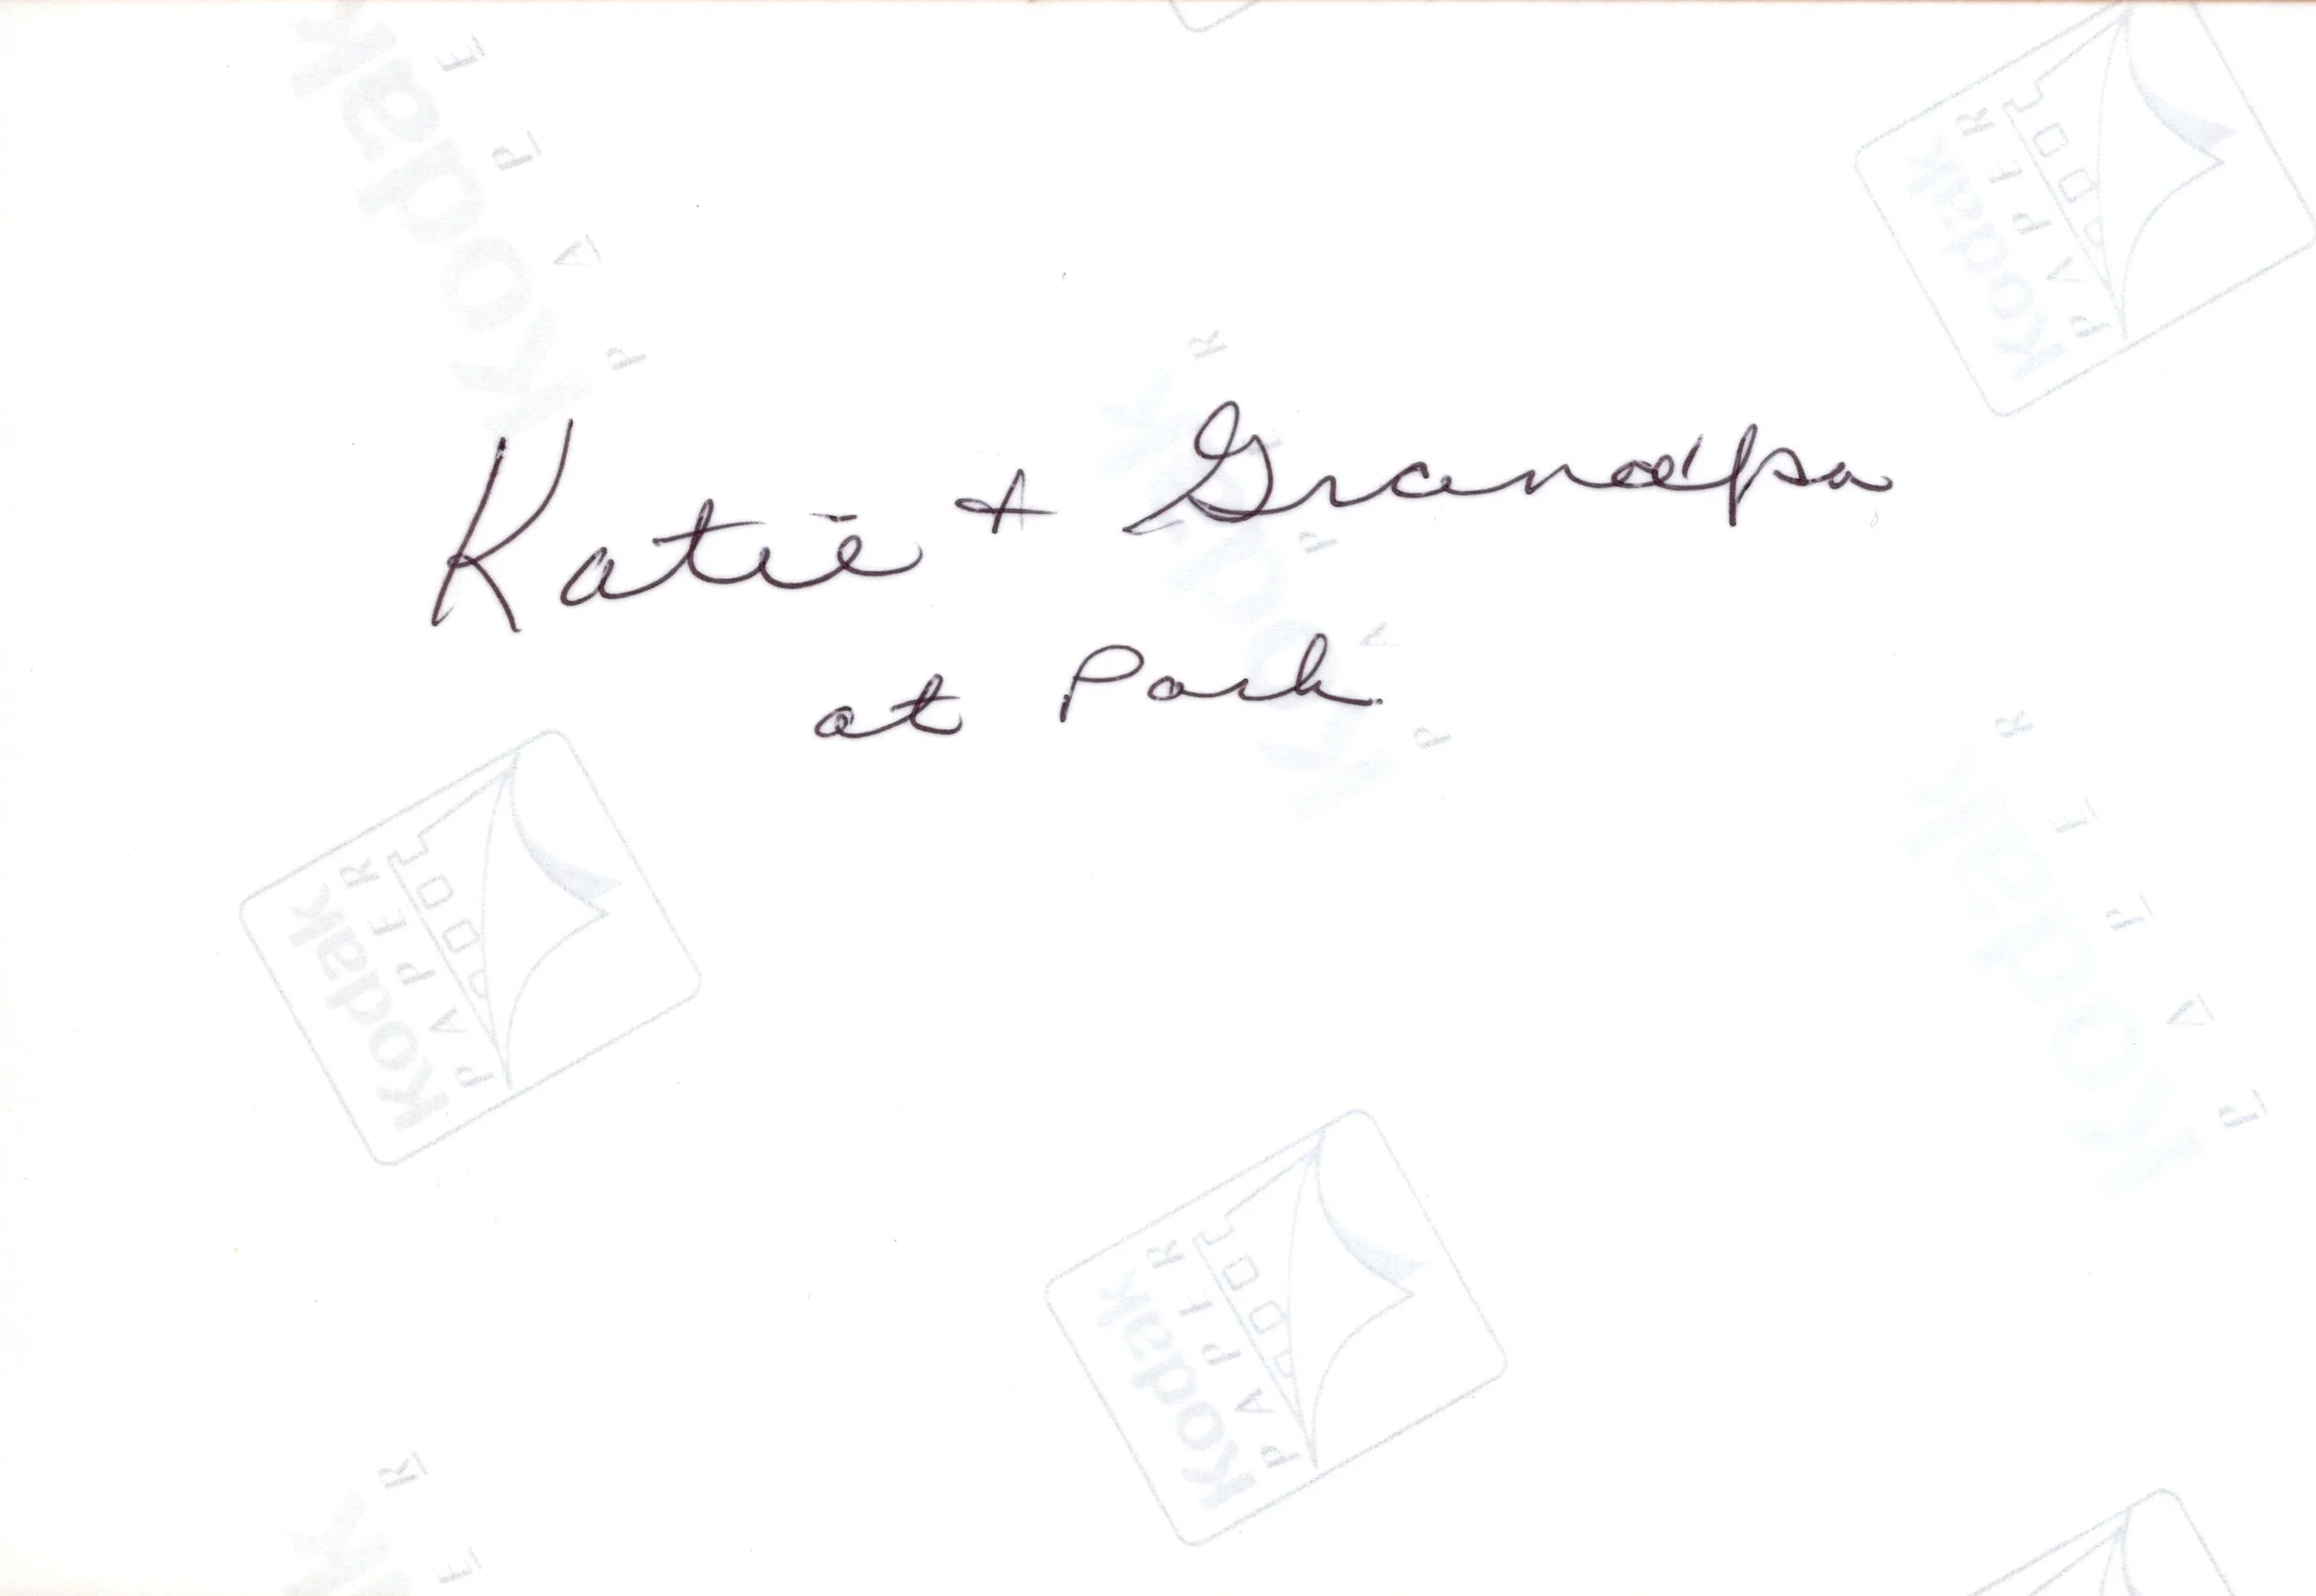 Kodak
PAPER
Kodak
PAPER
Katie + Grandpa
at Park
Kodak
PAPER
Kodak
PAPER
Kodak
PAPER
Kodak
PAPER